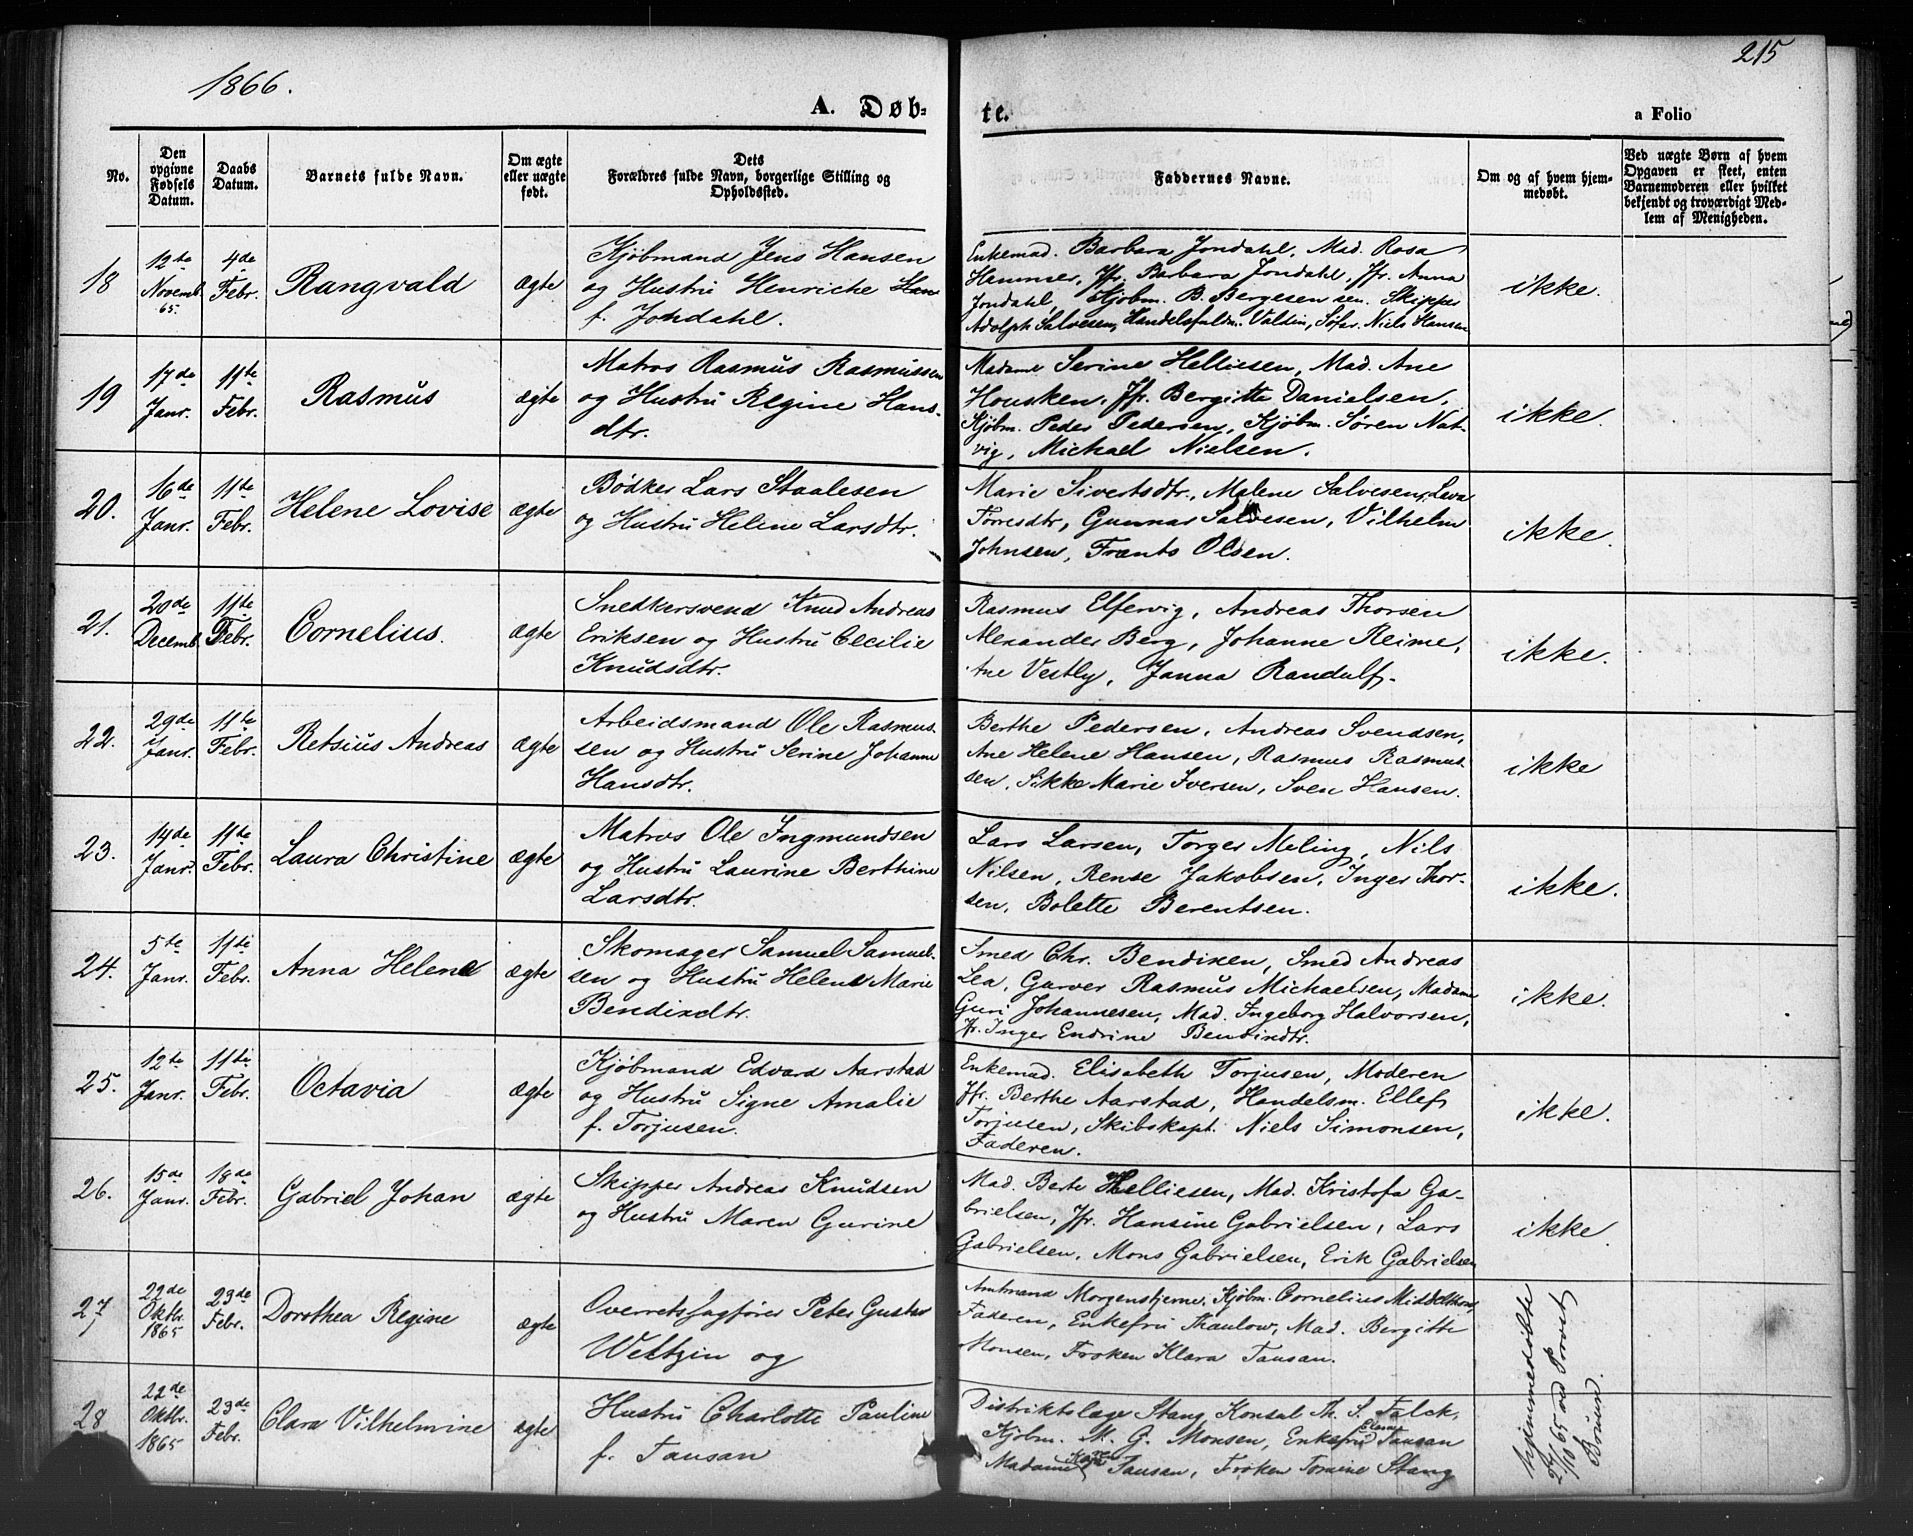 1866.
215
A. Døb-
te.
a Folio
No.
Den opgivne Fødsels Datum.
Daabs Datum.
Barnets fulde Navn.
Om ægte eller uægte født.
Dets Forældres fulde Navn, borgerlige Stilling og Opholdssted.
Faddernes Navne.
Om og af hvem hjemmedøbt.
Ved uægte Børn af hvem Opgaven er skeet, enten Barnemoderen eller hvilket bekjendt og troværdigt Medlem af Menigheden.
18
12te Novemb. 65.
4de Febr.
Rangvald
ægte
Kjøbmand Jens Hansen
og Hustru Henriche
f. Jondahl.
Enkemad. Barbara Jondahl, Mad. Rosa
Hammer, Jfr. Barbara Jondahl, Jfr. Anna
Jondahl, Kjøbm. B. Bergesen sen. Skipper
Adolph Salvesen, Handelsfuldm. Valdin, Søfar. Niels Hansen
ikke.
19
17de Janr.
11te Febr.
Rasmus
ægte
Matros Rasmus Rasmussen
og Hustru Regine Hans-
dtr.
Madame Serine Helliesen, Mad. Ane
Housken, Jfr. Bergitte Danielsen,
Kjøbm. Peder Pedersen, Kjøbm. Søren Nat-
vig, Michael Nielsen.
ikke.
20.
16de Janr.
11te Febr.
Helene Lovise
ægte
Bødker Lars Staalesen
og Hustru Helene Larsdtr.
Marie Sivertsdtr., Malene Salvesen, Lava
Torresdtr, Gunnar Salvesen, Vilhelm
Johnsen, Frants Olsen.
ikke.
21.
20de Decemb.
11te Febr.
Cornelius.
ægte
Snedkersvend Knud Andreas
Eriksen og Hustru Cecilie
Knudsdtr.
Rasmus Elfervig, Andreas Thorsen
Alexander Berg, Johanne Reime,
Ane Vestly, Janna Randulf.
ikke.
22.
29de Janr.
11te Febr.
Retsius Andreas
ægte
Arbeidsmand Ole Rasmus-
sen og Hustru Serine Johanne
Hansdtr.
Berthe Pedersen, Andreas Svendsen,
Ane Helene Hansen, Rasmus Rasmus-
sen, Sikke Marie Iversen, Sven Hansen.
ikke
23.
14de Janr.
11te Febr.
Laura Christine
ægte
Matros Ole Ingmundsen
og Hustru Laurine Berthine
Larsdtr.
Lars Larsen, Torger Meling, Nils
Nilsen, Rense Jakobsen, Inger Thor-
sen, Bolette Berentsen.
ikke.
24.
5te Janr.
11te Febr.
Anna Helene
ægte
Skomager Samuel Samuel-
sen og Hustru Helene Marie
Bendixdtr.
Smed Chr. Bendixen, Smed Andreas
Lea, Garver Rasmus Michaelsen, Madame
Guri Johannesen, Mad. Ingeborg Halvorsen,
Jfr. Inger Endrine Bendixdtr.
ikke.
25.
12te Janr.
11te Febr.
Octavia
ægte
Kjøbmand Edvard Aarstad
og Hustru Signe Amalie
f. Torjusen.
Enkemad. Elisabeth Torjusen, Moderen
Jfr. Berthe Aarstad, Handelsm. Ellef
Torjusen, Skibskapt. Niels Simonsen,
Faderen.
ikke.
26.
15de Janr.
18de Febr.
Gabriel Johan
ægte
Skipper Andreas Knudsen
og Hustru Maren Gurine
Mad. Berte Helliesen, Mad. Kristofa Ga-
brielsen, Jfr. Hansine Gabrielsen, Lars
Gabrielsen, Mons Gabrielsen, Erik Gabrielsen
ikke.
27
22de Oktbr. 1865
23de Febr.
Dorothea Regine
ægte
Overretssagfører Peter Gustav
Weltzin og
Amtmand Morgenstjerne, Kjøbm. Cornelius Middelthon,
Faderen, Enkefru Thaulow, Mad. Bergitte
Monsen, Frøken Klara Tausan.
hjemmedøbte
27/10 65 ved Provst
Bruun.
28
22de Oktbr. 1865
23de Febr.
Clara Vilhelmine
ægte
Hustru Charlotte Pauline
f. Tausan
Distriktslæge Stang, Konsul Th. S. Falck,
Kjøbm. M. G. Monsen, Enkefru Tausan
Madame Tausan, Frøken Tomine Stang